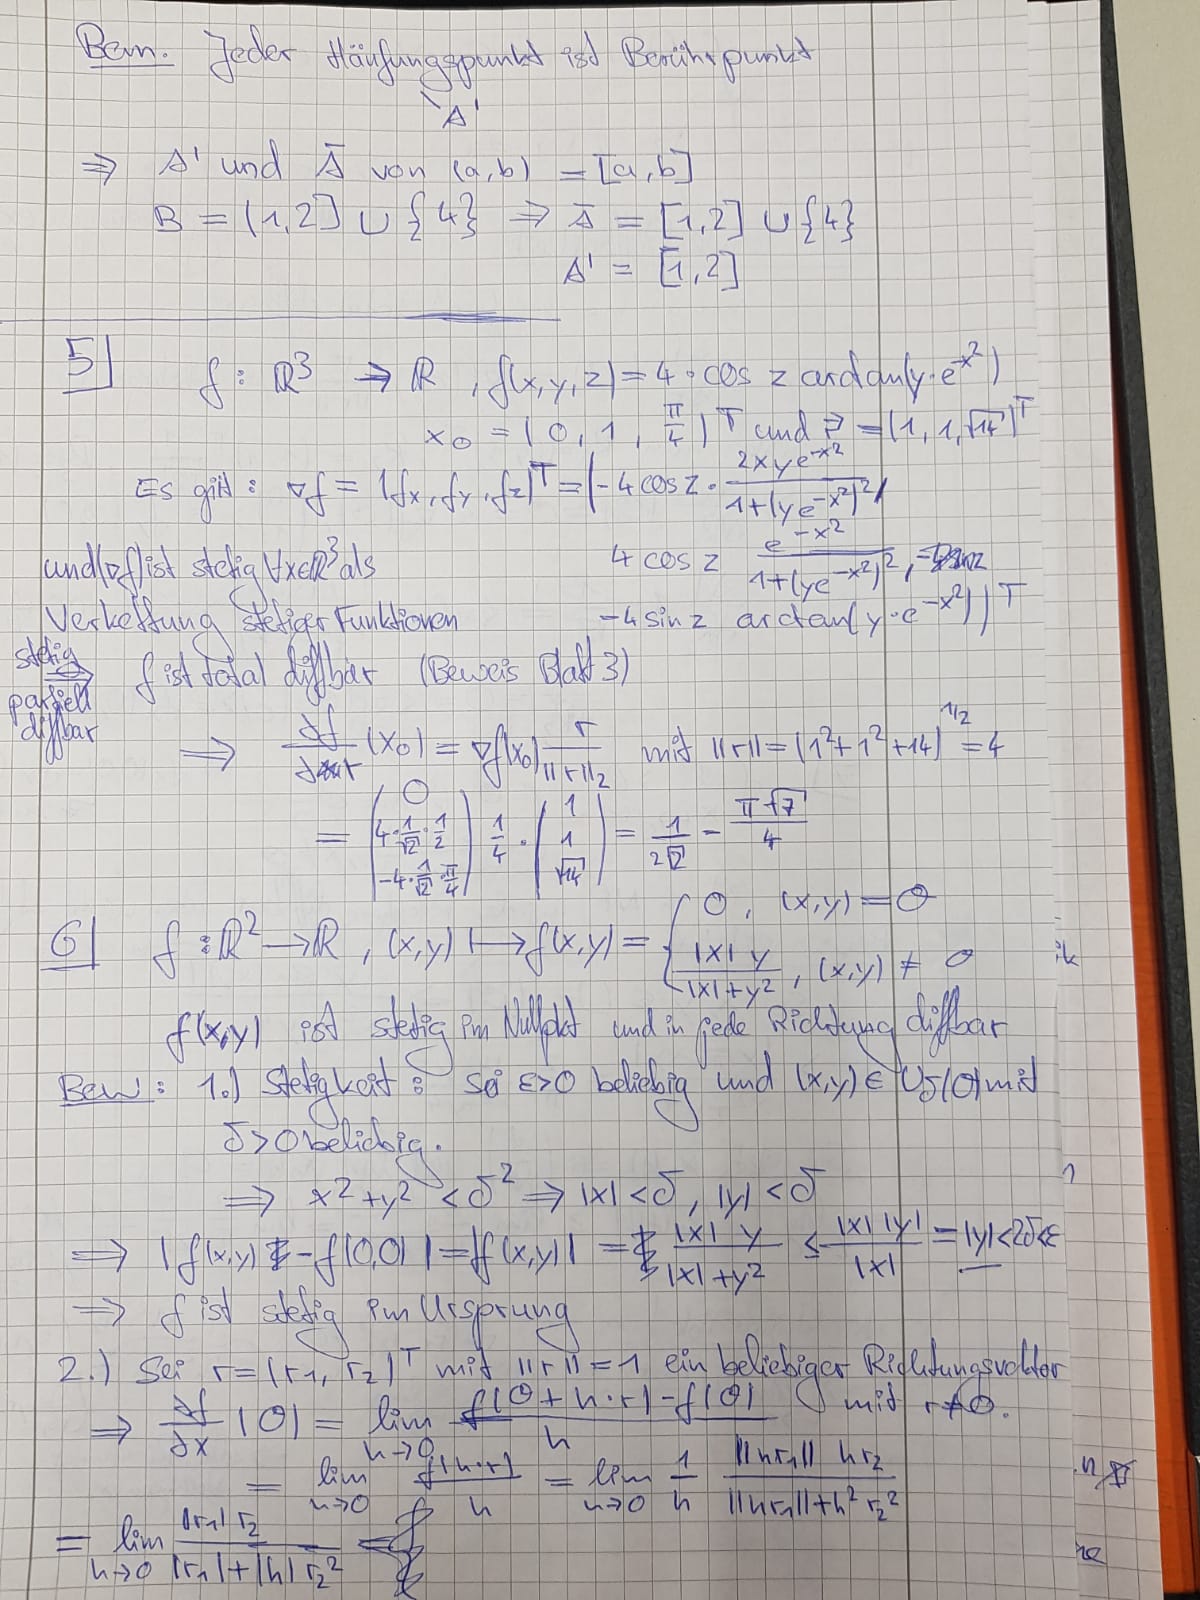 Bem. Jeder Häufungspunkt ist Berührpunkt
A'
⇒ A' und Ā von (a,b) = [a,b]
B = (1,2] ∪ {4} ⇒ Ā = [1,2] ∪ {4}
A' = [1,2]
5| f: ℝ³ → ℝ, f(x,y,z) = 4·cos z arctan(y·e^{-x²})
x₀ = (0, 1, π/4)^T und r = (1, 1, √14)^T
Es gilt: ∇f = (fx, fy, fz)^T = (-4 cos z · 2xye^{-x²} / (1+(ye^{-x²})²),
und (∇f) ist stetig ∀x∈ℝ³ als 4 cos z e^{-x²} / (1+(ye^{-x²})²,
Verkettung stetiger Funktionen -4 sin z arctan(y·e^{-x²}))^T
stetig partiell diffbar ⇒ f ist total diffbar (Beweis Blatt 3)
⇒ ∂f/∂r (x₀) = ∇f(x₀) r/||r||₂ mit ||r|| = (1²+1²+14)^{1/2} = 4
= (0, 4·1/√2·1/2, -4·1/√2·π/4) 1/4 · (1, 1, √14) = 1/(2√2) - π√7/4
6| f: ℝ² → ℝ, (x,y) ↦ f(x,y) = { 0, (x,y) = 0
|x| y / (|x|+y²), (x,y) ≠ 0
f(x,y) ist stetig im Nullpkt und in jede Richtung diffbar
Bew: 1.) Stetigkeit: Sei ε>0 beliebig und (x,y) ∈ U_δ(0) mit
δ>0 beliebig.
⇒ x²+y² < δ² ⇒ |x| < δ, |y| < δ
⇒ |f(x,y) - f(0,0)| = |f(x,y)| = |x| y / (|x|+y²) ≤ |x| |y| / |x| = |y| < 2δ < ε
⇒ f ist stetig im Ursprung
2.) Sei r = (r₁, r₂)^T mit ||r|| = 1 ein beliebiger Richtungsvektor
mit r≠0.
⇒ ∂f/∂x (0) = lim_{h→0} (f(0+h·r) - f(0)) / h
= lim_{h→0} f(h·r) / h = lim_{h→0} 1/h ||hr₁|| hr₂ / (||hr₁||+h² r₂²)
= lim_{h→0} |r₁| r₂ / (|r₁|+|h| r₂²)